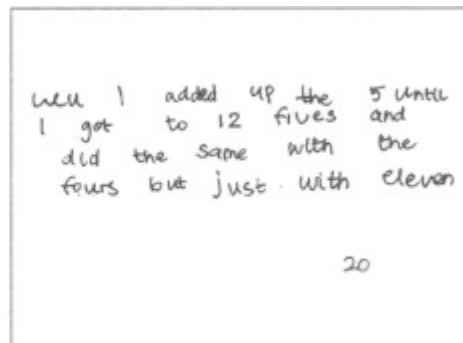 well I added up the 5 until
I got to 12 fives and
did the same with the
fours but just with eleven
20